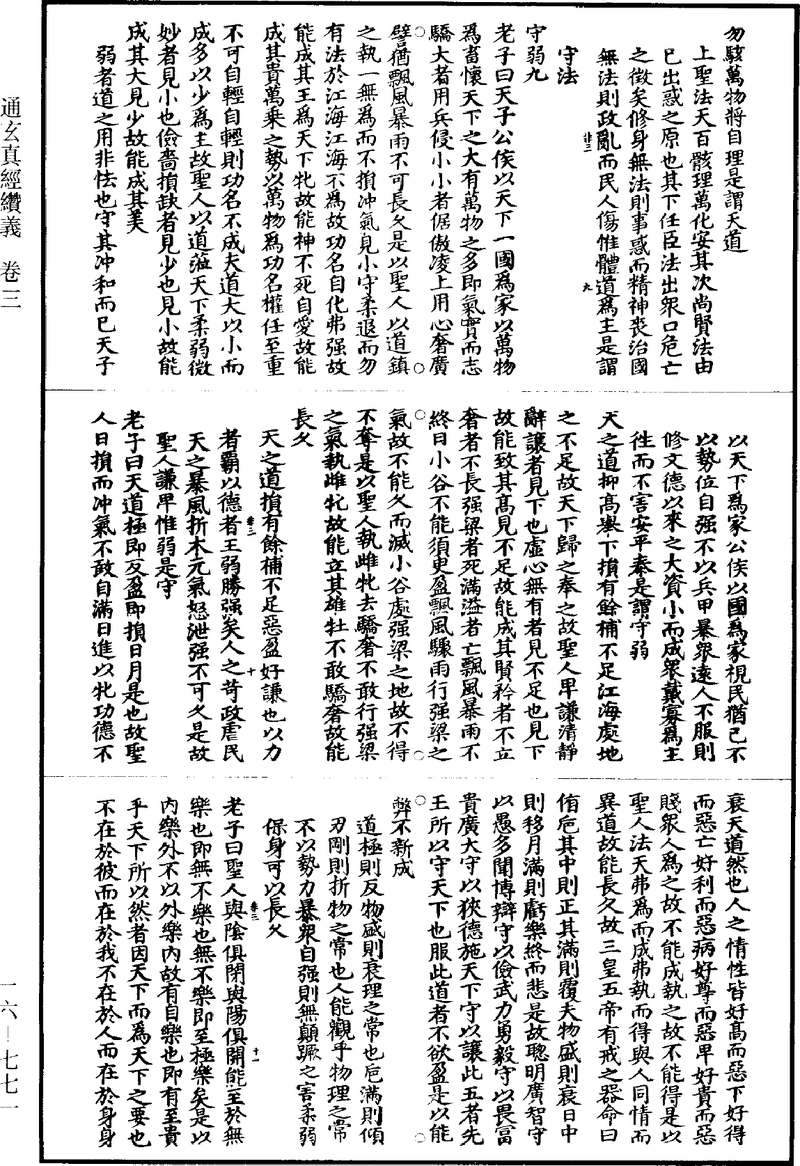 勿駭萬物將自理是謂天道
上聖法天百骸理萬化安其次尚賢法由
已出惑之原也其下任臣法出衆口危亡
之徵矣修身無法則事惑而精神喪治國
無法則政亂而民人傷惟體道爲主是謂
守法
守弱九
老子曰天子公侯以天下一國爲家以萬物
爲畜懷天下之大有萬物之多即氣實而志
驕大者用兵侵小小者倨傲凌上用心奢廣
譬猶飄風暴雨不可長久是以聖人以道鎮
之執一無爲而不損冲氣見小守柔退而勿
有法於江海江海不爲故功名自化弗强故
能成其王爲天下牝故能神不死自愛故能
成其貴萬乗之勢以萬物爲功名權任至重
不可自輕自輕則功名不成夫道大以小而
成多以少爲主故聖人以道蒞天下柔弱微
妙者見小也儉嗇損缺者見少也見小故能
成其大見少故能成其美
弱者道之用非怯也守其冲和而已天子
以天下爲家公侯以國爲家視民猶己不
以勢位自强不以兵甲暴衆遠人不服則
修文德以來之大資小而成衆戴寡爲主
徃而不害安平泰是謂守弱
天之道抑高舉下損有餘補不足江海處地
之不足故天下歸之奉之故聖人卑謙清靜
辭讓者見下也虛心無有者見不足也見下
故能致其高見不足故能成其賢矜者不立
奢者不長强梁者死滿溢者亡飄風暴雨不
終日小谷不能須更盈飄風驟雨行强梁之
氣故不能久而滅小谷處强梁之地故不得
不奪是以聖人執雌牝去驕奢不敢行强梁
之氣執雌牝故能立其雄牡不敢驕奢故能
長久
天之道損有餘補不足惡盈好謙也以力
者霸以德者王弱勝强矣人之苛政虐民
天之暴風折木元氣怒泄强不可久是故
聖人謙卑惟弱是守
老子曰天道極即反盈即損日月是也故聖
人日損而冲氣不敢自滿日進以牝功德不
衰天道然也人之情性皆好高而惡下好得
而惡亡好利而惡病好尊而惡卑好貴而惡
賤衆人爲之故不能成執之故不能得是以
聖人法天弗爲而成弗執而得與人同情而
異道故能長久故三皇五帝有戒之器命曰
侑巵其中則正其滿則覆夫物盛則衰日中
則移月滿則虧樂終而悲是故聰明廣智守
以愚多聞博辯守以儉武力勇毅守以畏富
貴廣大守以狹德施天下守以讓此五者先
王所以守天下也服此道者不欲盈是以能
弊不新成
道極則反物盛則衰理之常也巵滿則傾
刃剛則折物之常也人能觀乎物理之常
不以勢力暴衆自强則無顛蹶之害柔弱
保身可以長久
老子曰聖人與陰俱閉與陽俱開能至於無
樂也即無不樂也無不樂即至極樂矣是以
内樂外不以外樂内故有自樂也即有至貴
乎天下所以然者因天下而爲天下之要也
不在於彼而在於我不在於人而在於身身
卷三
九
卷三
十
卷三
十一
通玄真經纘義 卷三
一六—七七一